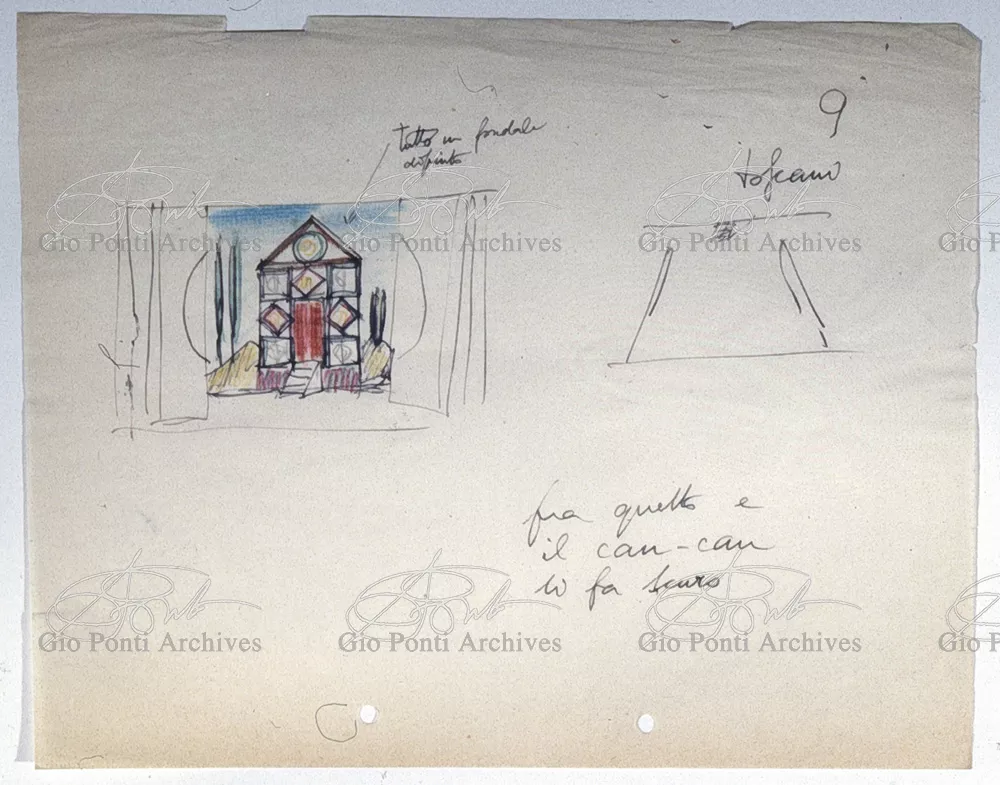 9
tutto un fondale
dipinto
toscano
fra quello e
il can-can
si fa scuro
Gio Ponti Archives
Gio Ponti Archives
Gio Ponti Archives
Gio P
Gio Ponti Archives
Gio Ponti Archives
Gio Ponti Archives
Gio P